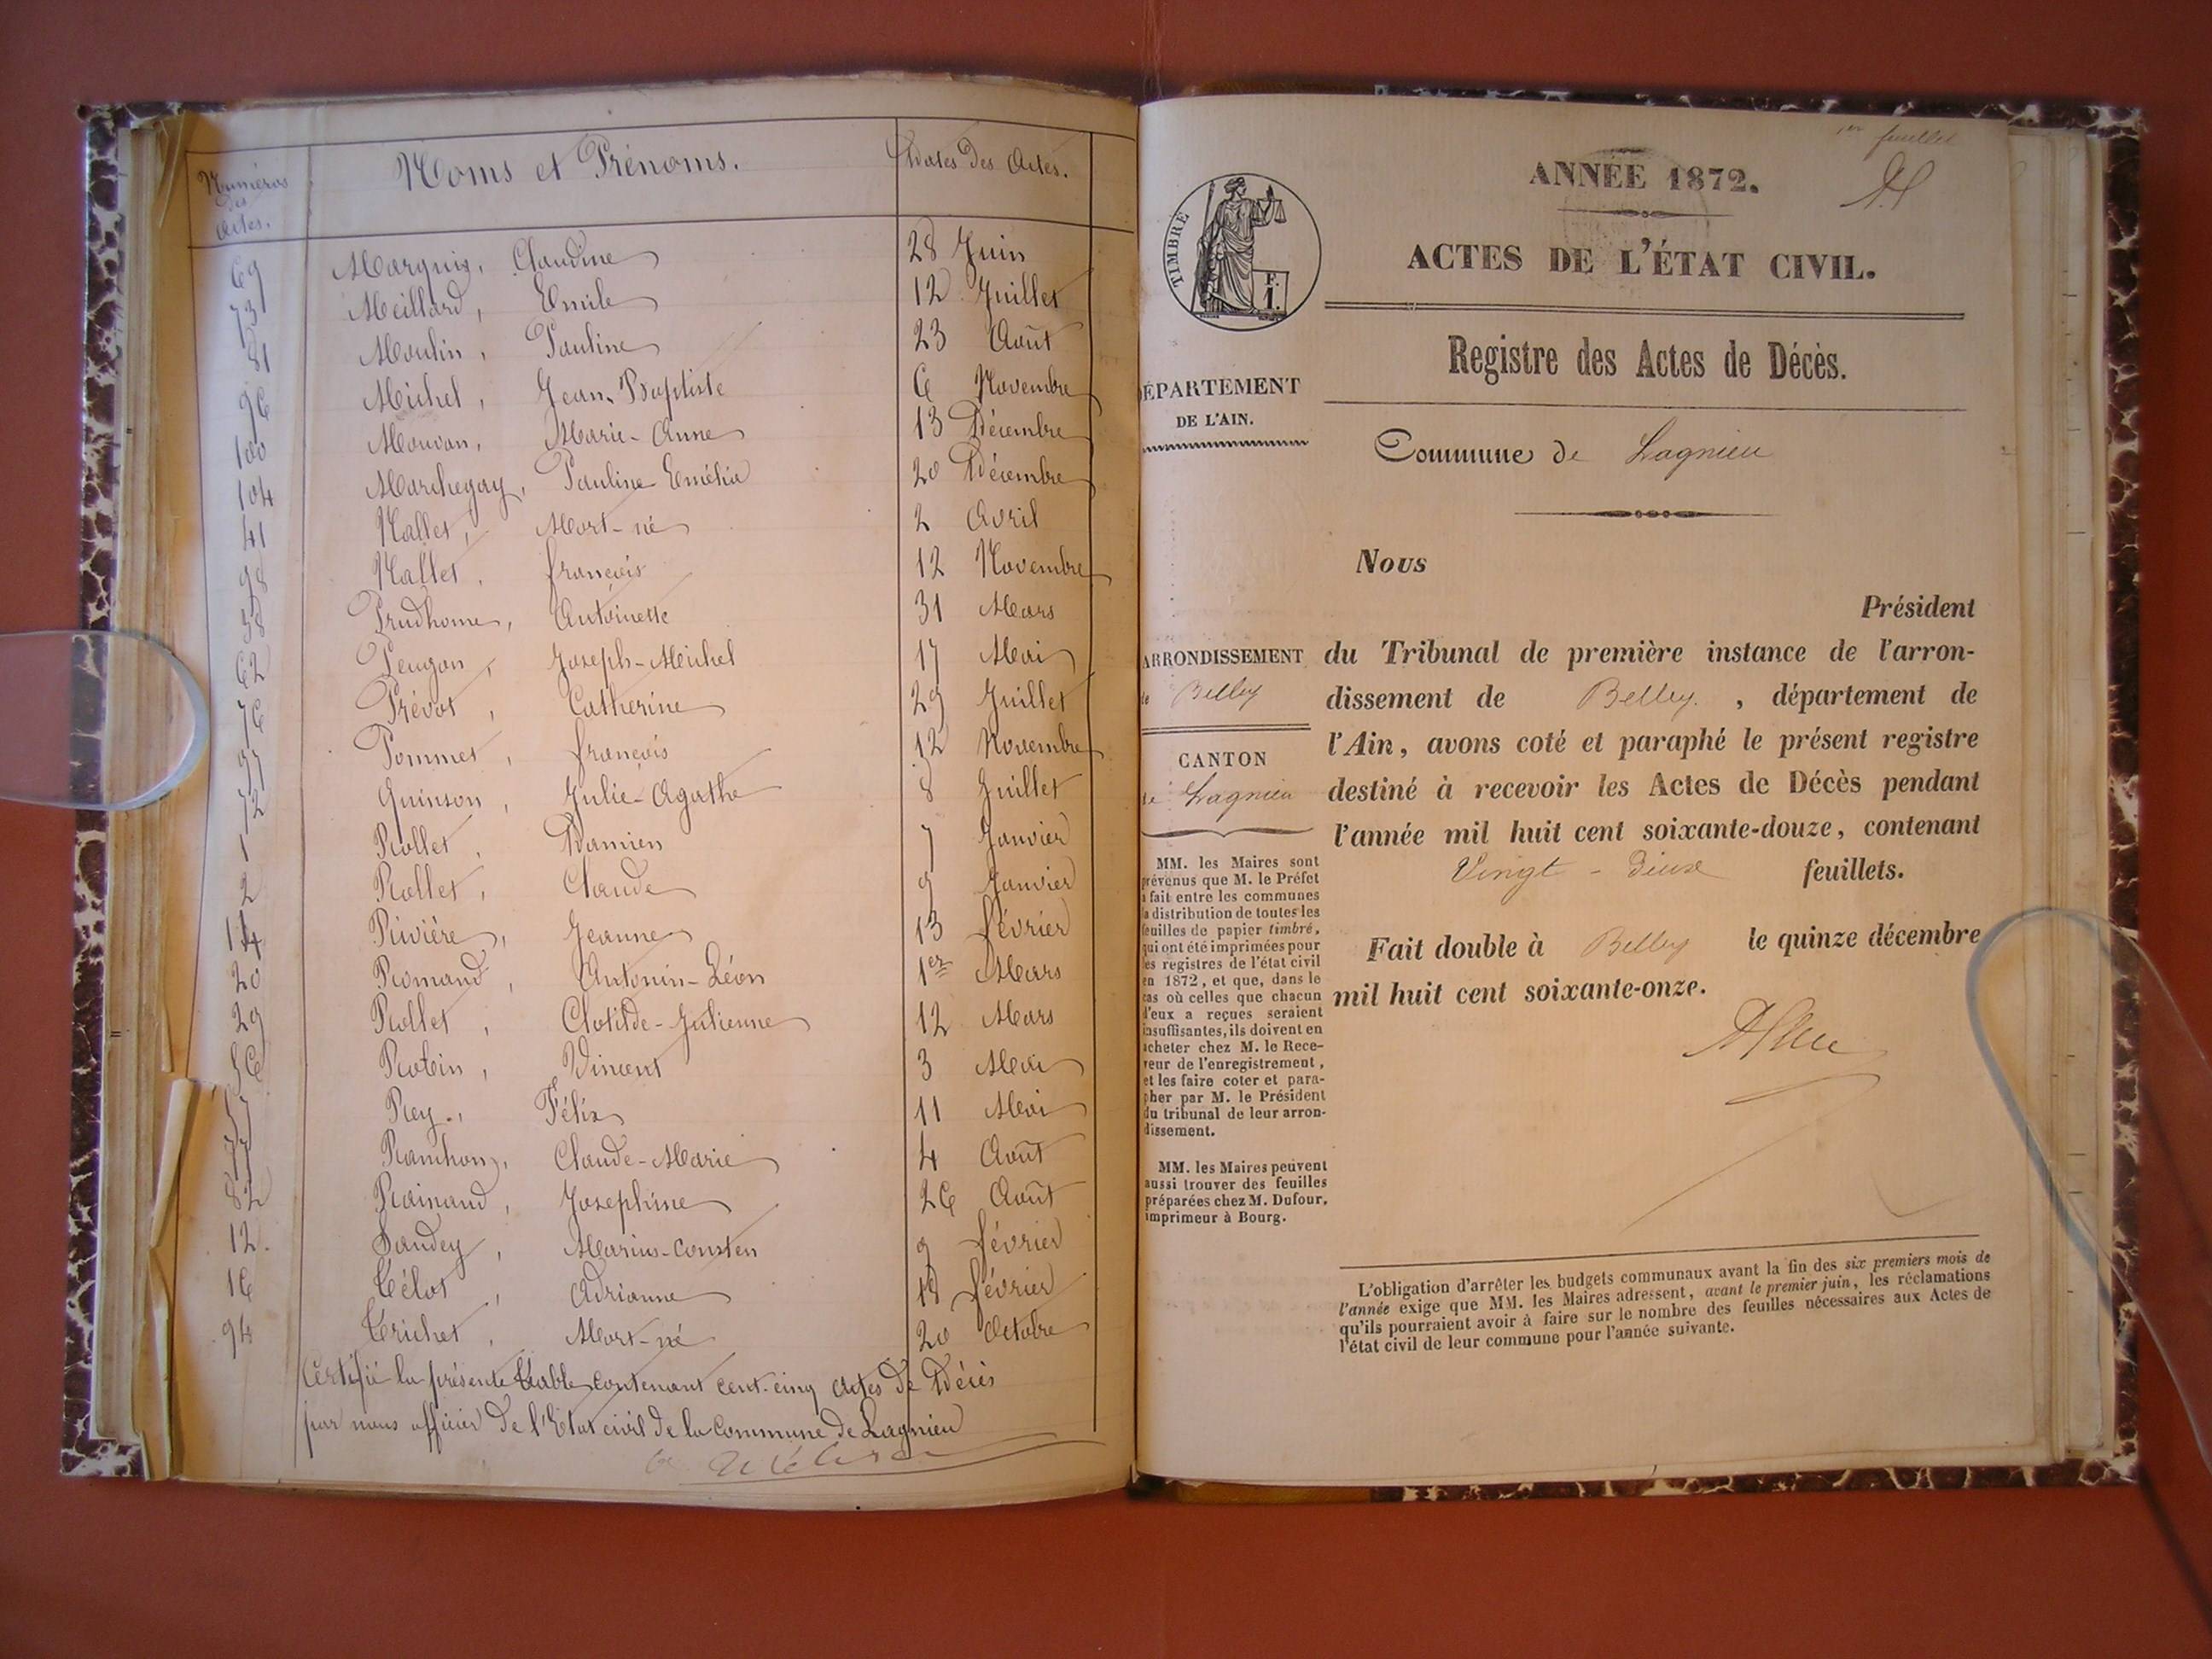 Numéros des Actes. Noms et Prénoms. Dates des Actes.
69 Marquis, Claudine 28 Juin
73 Meillard, Emile 12 Juillet
81 Moulin, Pauline 23 Août
96 Michel, Jean-Baptiste 6 Novembre
100 Mouvan, Marie-Anne 13 Décembre
104 Marchegay, Pauline Emélia 20 Décembre
41 Nallet, Mort-né 2 Avril
98 Nallet, françois 12 Novembre
38 Prudhome, Antoinette 31 Mars
62 Peugon, Joseph-Michel 17 Mai
76 Prévot, Catherine 29 Juillet
97 Pommet, françois 12 Novembre
72 Quinson, Julie-Agathe 8 Juillet
1 Rollet, Damien 7 Janvier
2 Rollet, Claude 9 Janvier
14 Rivière, Jeanne 13 février
20 Romand, Antonin-Léon 1er Mars
29 Rollet, Clotilde-Julienne 12 Mars
56 Robin, Vincent 3 Mai
57 Rey, Félix 11 Mai
77 Ranchon, Claude-Marie 4 Août
82 Rainaud, Joséphine 26 Août
12. Sandey, Marius-Consten 9 février
16 Télot, Adrianne février
94 Trichet, Mort-né 20 Octobre
Certifié la présente table contenant cent-cinq actes de Décès
par nous officier de l'Etat civil de la Commune de Lagnieu
1er feuillet
ANNÉE 1872.
TIMBRE
F.
1.
ACTES DE L'ÉTAT CIVIL.
Registre des Actes de Décès.
DÉPARTEMENT
DE L'AIN.
Commune de Lagnieu
Nous
Président
ARRONDISSEMENT
de Belley
CANTON
de Lagnieu
du Tribunal de première instance de l'arron-
dissement de Belley, département de
l'Ain, avons coté et paraphé le présent registre
destiné à recevoir les Actes de Décès pendant
l'année mil huit cent soixante-douze, contenant
Vingt-deux feuillets.
Fait double à Belley le quinze décembre
mil huit cent soixante-onze.
MM. les Maires sont
prévenus que M. le Préfet
a fait entre les communes
la distribution de toutes les
feuilles de papier timbré,
qui ont été imprimées pour
les registres de l'état civil
en 1872, et que, dans le
cas où celles que chacun
d'eux a reçues seraient
insuffisantes, ils doivent en
acheter chez M. le Rece-
veur de l'enregistrement,
et les faire coter et para-
pher par M. le Président
du tribunal de leur arron-
dissement.
MM. les Maires peuvent
aussi trouver des feuilles
préparées chez M. Dufour,
imprimeur à Bourg.
L'obligation d'arrêter les budgets communaux avant la fin des six premiers mois de
l'année exige que MM. les Maires adressent, avant le premier juin, les réclamations
qu'ils pourraient avoir à faire sur le nombre des feuilles nécessaires aux Actes de
l'état civil de leur commune pour l'année suivante.